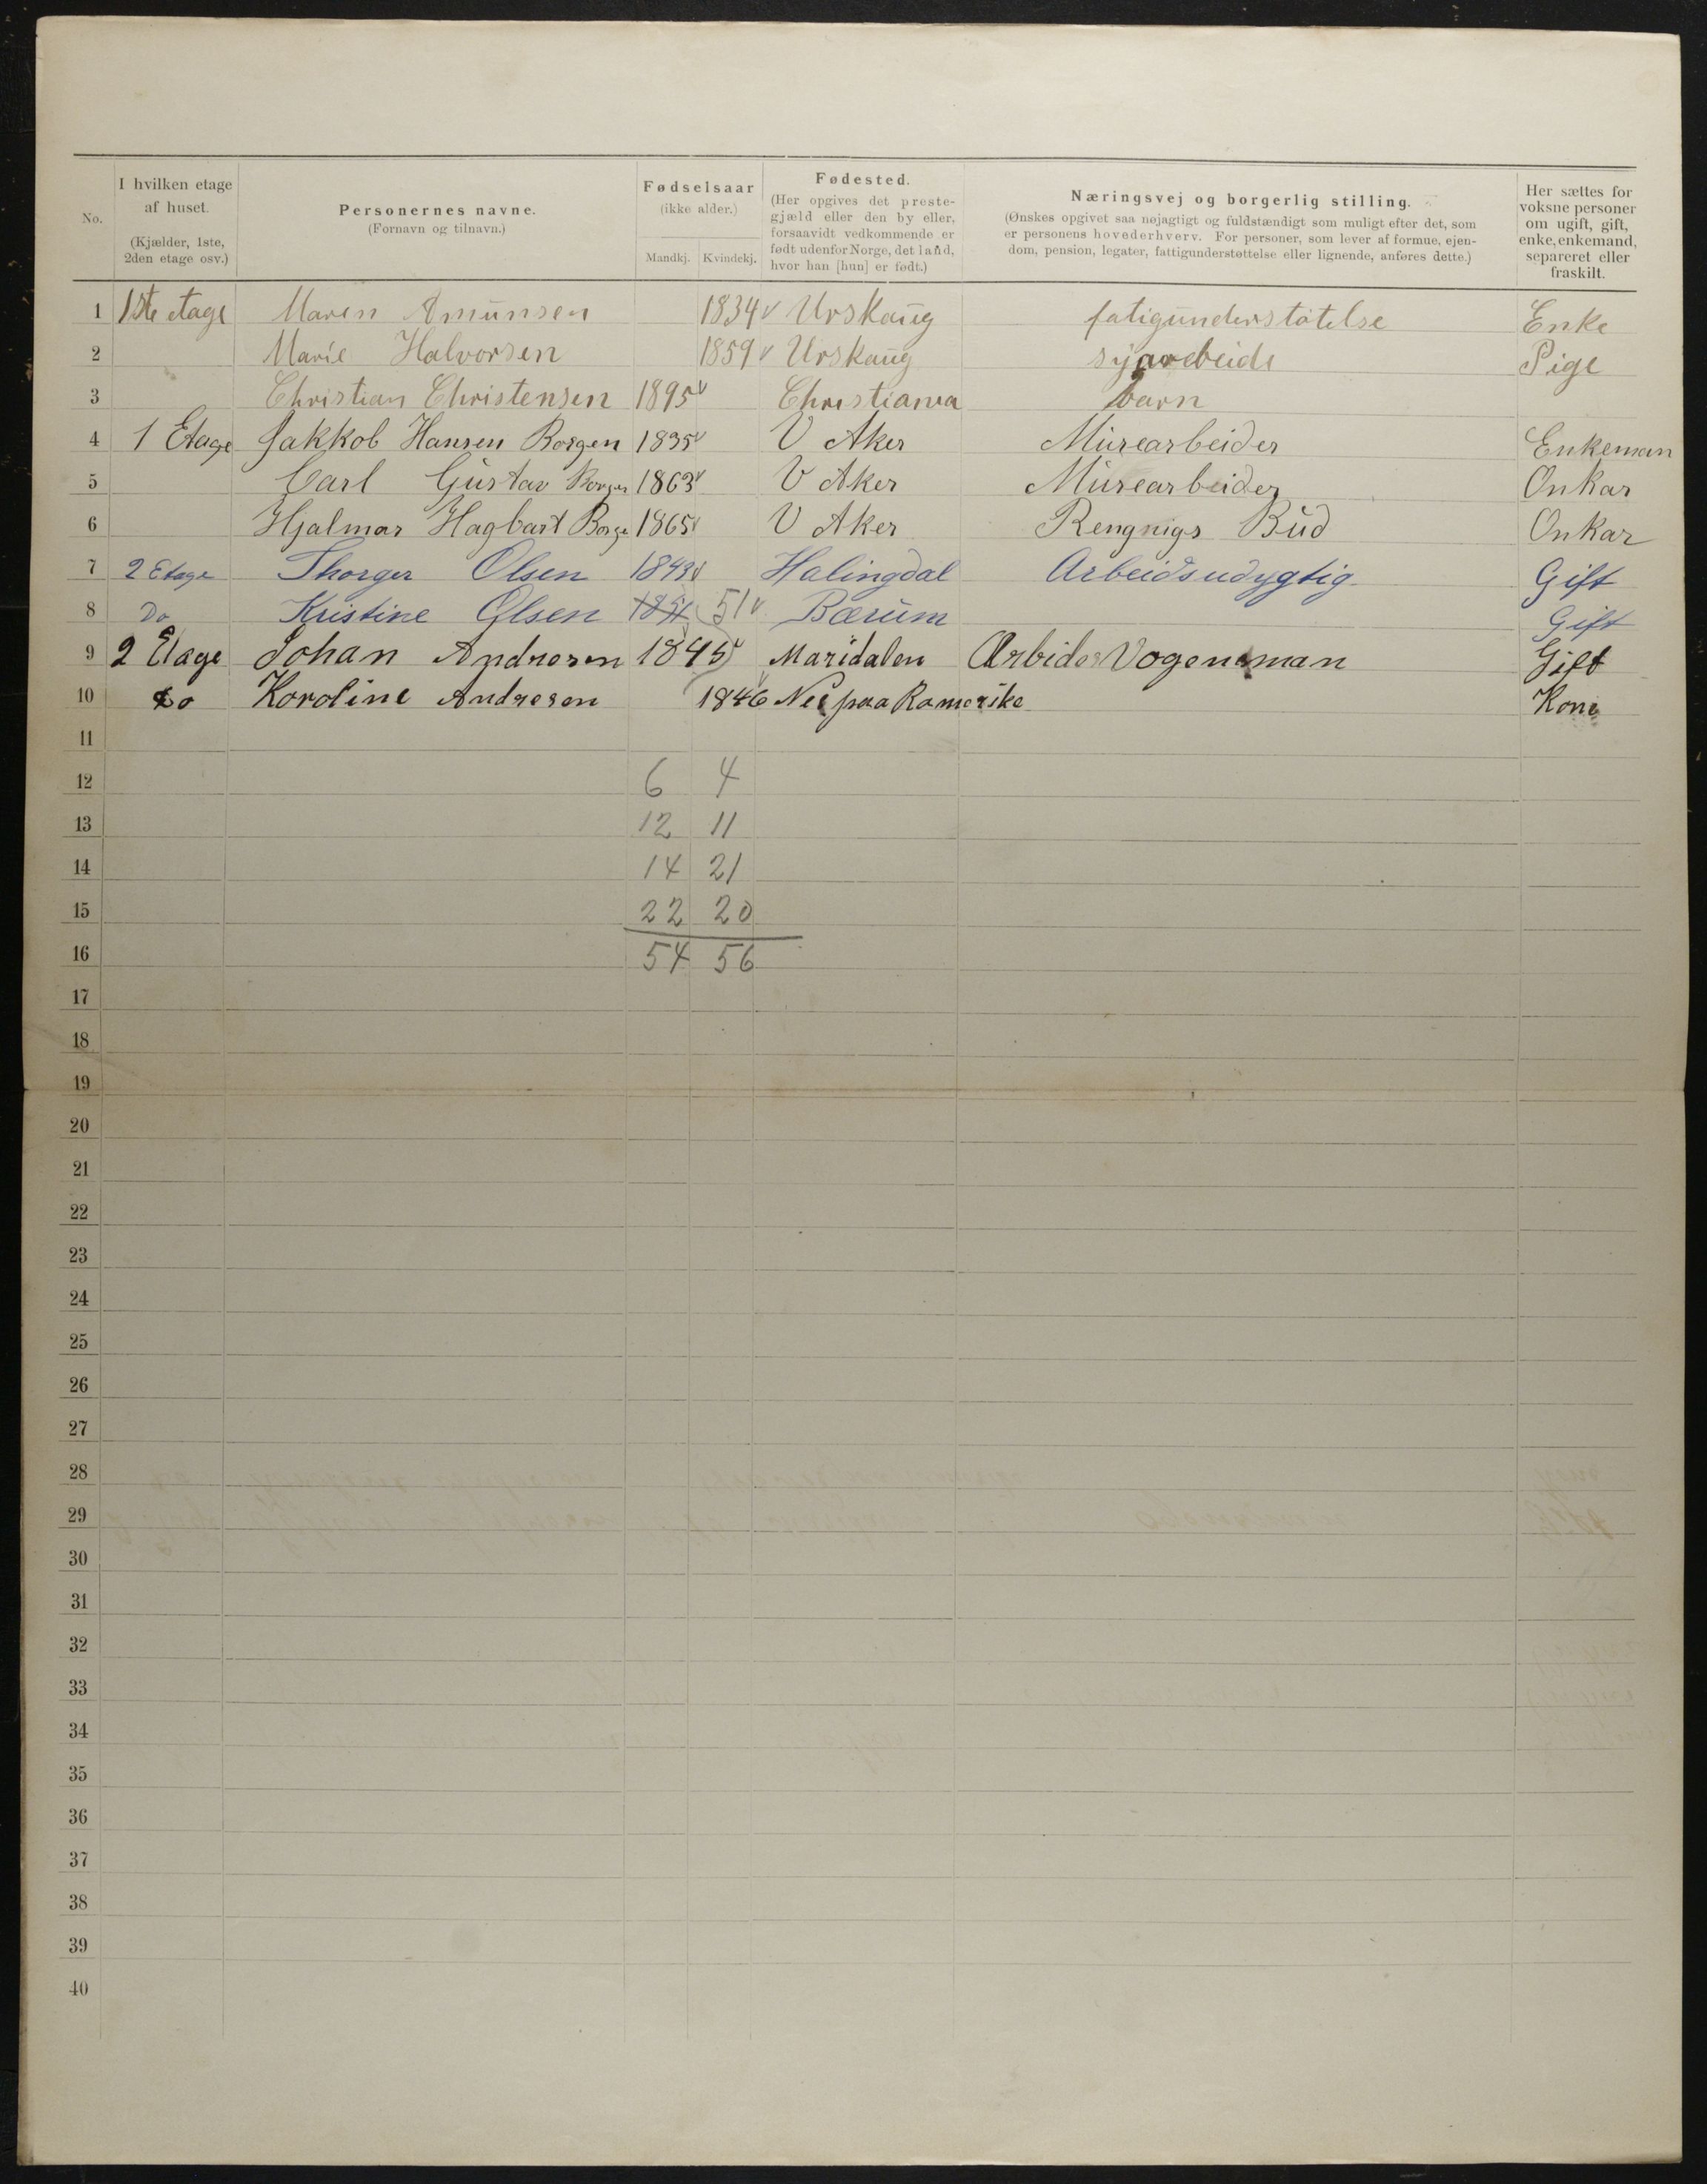 No.
I hvilken etage af huset. (Kjælder, 1ste, 2den etage osv.)
Personernes navne. (Fornavn og tilnavn.)
Fødselsaar (ikke alder.) Mandkj. Kvindekj.
Fødested. (Her opgives det prestegjæld eller den by eller, forsaavidt vedkommende er født udenfor Norge, det land, hvor han [hun] er født.)
Næringsvej og borgerlig stilling. (Ønskes opgivet saa nøjagtigt og fuldstændigt som muligt efter det, som er personens hovederhverv. For personer, som lever af formue, ejendom, pension, legater, fattigunderstøttelse eller lignende, anføres dette.)
Her sættes for voksne personer om ugift, gift, enke, enkemand, separeret eller fraskilt.
1 1ste etage Maren Amunsen 1834 Urskaug fatigunderstøtelse Enke
2 Marie Halvorsen 1859 Urskaug syarbeide Pige
3 Christian Christensen 1895 Christiania barn
4 1 Etage Jakkob Hansen Borgen 1835 V Aker Murearbeider Enkeman
5 Carl Gustav Borgen 1863 V Aker Murearbeider Onkar
6 Hjalmar Hagbart Borge 1865 V Aker Rengnigs Bud Onkar
7 2 Etage Thorger Olsen 1843 Halingdal Arbeidsudygtig Gift
8 Do Kristine Olsen 1851 51 Bærum Gift
9 2 Etage Johan Andresen 1845 Maridalen Arbider Vogenman Gift
10 Do Koroline Andresen 1846 Nes paa Ramerike Kone
11
12 6 4
13 12 11
14 14 21
15 22 20
16 54 56
17
18
19
20
21
22
23
24
25
26
27
28
29
30
31
32
33
34
35
36
37
38
39
40